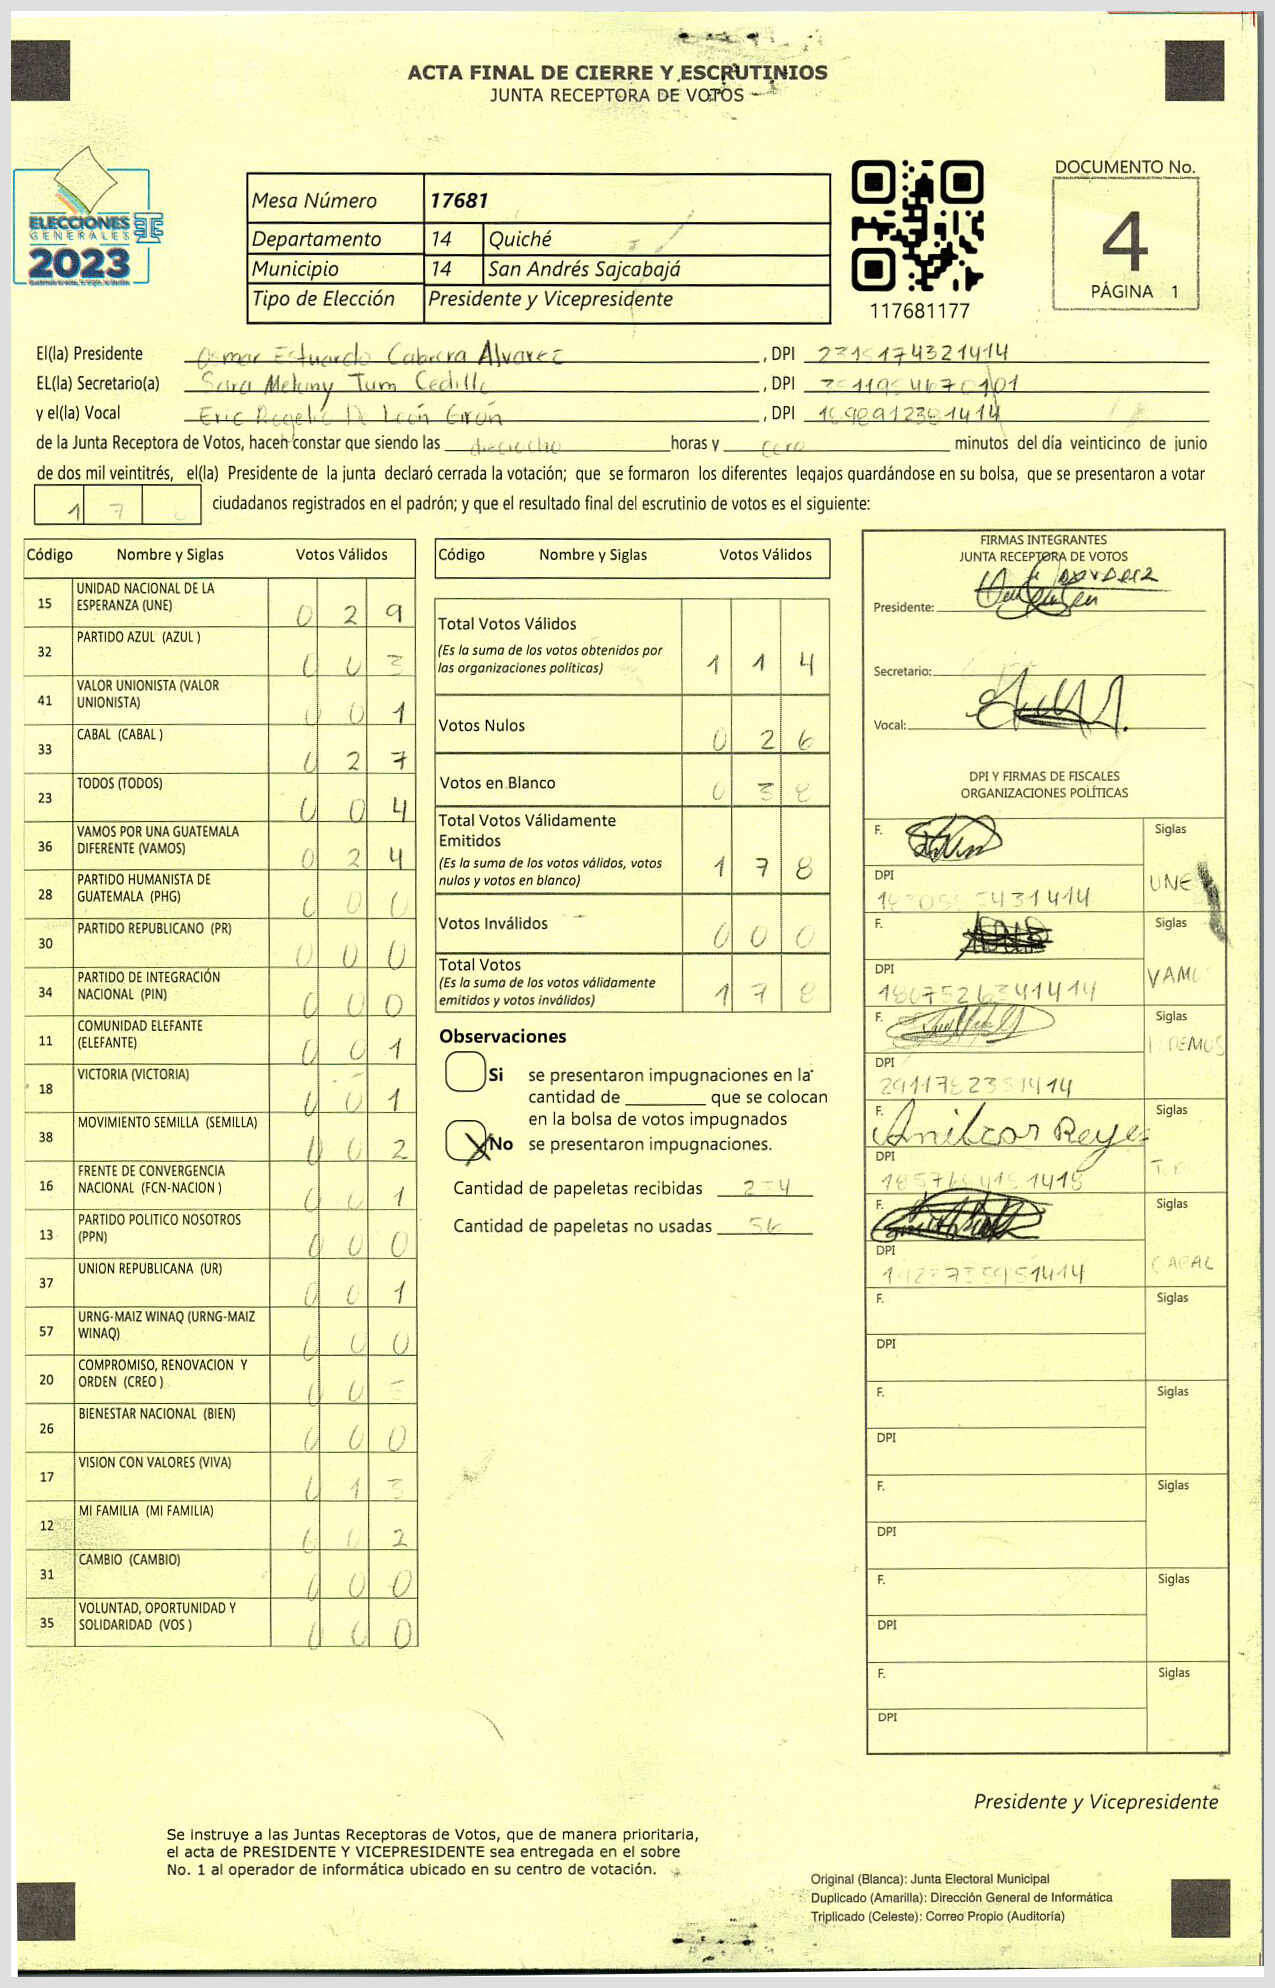 ACTA FINAL DE CIERRE Y ESCRUTINIOS
JUNTA RECEPTORA DE VOTOS
ELECCIONES
GENERALES
2023
Mesa Número 17681
Departamento 14 Quiché
Municipio 14 San Andrés Sajcabajá
Tipo de Elección Presidente y Vicepresidente
117681177
DOCUMENTO No.
4
PÁGINA 1
El(la) Presidente Osmar Estuardo Cabrera Alvarez , DPI 2315174321414
EL(la) Secretario(a) Sara Melany Tum Cedillo , DPI
y el(la) Vocal Eric Rogelio De León Girón , DPI
de la Junta Receptora de Votos, hacen constar que siendo las dieciocho horas y cero minutos del día veinticinco de junio
de dos mil veintitrés, el(la) Presidente de la junta declaró cerrada la votación; que se formaron los diferentes legajos guardándose en su bolsa, que se presentaron a votar
1 7 ciudadanos registrados en el padrón; y que el resultado final del escrutinio de votos es el siguiente:
Código Nombre y Siglas Votos Válidos
15 UNIDAD NACIONAL DE LA ESPERANZA (UNE) 0 2 9
32 PARTIDO AZUL (AZUL ) 0 0 3
41 VALOR UNIONISTA (VALOR UNIONISTA) 0 0 1
33 CABAL (CABAL ) 0 2 7
23 TODOS (TODOS) 0 0 4
36 VAMOS POR UNA GUATEMALA DIFERENTE (VAMOS) 0 2 4
28 PARTIDO HUMANISTA DE GUATEMALA (PHG) 0 0 0
30 PARTIDO REPUBLICANO (PR) 0 0 0
34 PARTIDO DE INTEGRACIÓN NACIONAL (PIN) 0 0 0
11 COMUNIDAD ELEFANTE (ELEFANTE) 0 0 1
18 VICTORIA (VICTORIA) 0 0 1
38 MOVIMIENTO SEMILLA (SEMILLA) 0 0 2
16 FRENTE DE CONVERGENCIA NACIONAL (FCN-NACION ) 0 0 1
13 PARTIDO POLITICO NOSOTROS (PPN) 0 0 0
37 UNION REPUBLICANA (UR) 0 0 1
57 URNG-MAIZ WINAQ (URNG-MAIZ WINAQ) 0 0 0
20 COMPROMISO, RENOVACION Y ORDEN (CREO ) 0 0 5
26 BIENESTAR NACIONAL (BIEN) 0 0 0
17 VISION CON VALORES (VIVA) 0 1 3
12 MI FAMILIA (MI FAMILIA) 0 0 2
31 CAMBIO (CAMBIO) 0 0 0
35 VOLUNTAD, OPORTUNIDAD Y SOLIDARIDAD (VOS ) 0 0 0
Código Nombre y Siglas Votos Válidos
Total Votos Válidos 1 1 4
(Es la suma de los votos obtenidos por
las organizaciones políticas)
Votos Nulos 0 2 6
Votos en Blanco 0 3 8
Total Votos Válidamente
Emitidos 1 7 8
(Es la suma de los votos válidos, votos
nulos y votos en blanco)
Votos Inválidos 0 0 0
Total Votos 1 7 8
(Es la suma de los votos válidamente
emitidos y votos inválidos)
Observaciones
Si se presentaron impugnaciones en la
cantidad de ________ que se colocan
en la bolsa de votos impugnados
X No se presentaron impugnaciones.
Cantidad de papeletas recibidas 234
Cantidad de papeletas no usadas 56
FIRMAS INTEGRANTES
JUNTA RECEPTORA DE VOTOS
Presidente:
Secretario:
Vocal:
DPI Y FIRMAS DE FISCALES
ORGANIZACIONES POLÍTICAS
F. Siglas
DPI UNE
F. Siglas
DPI VAMOS
1807526341414
F. Siglas
DPI
F. Anilcar Reyes Siglas
DPI
F. Siglas
DPI CABAL
F. Siglas
DPI
F. Siglas
DPI
F. Siglas
DPI
F. Siglas
DPI
F. Siglas
DPI
Presidente y Vicepresidente
Se instruye a las Juntas Receptoras de Votos, que de manera prioritaria,
el acta de PRESIDENTE Y VICEPRESIDENTE sea entregada en el sobre
No. 1 al operador de informática ubicado en su centro de votación.
Original (Blanca): Junta Electoral Municipal
Duplicado (Amarilla): Dirección General de Informática
Triplicado (Celeste): Correo Propio (Auditoría)